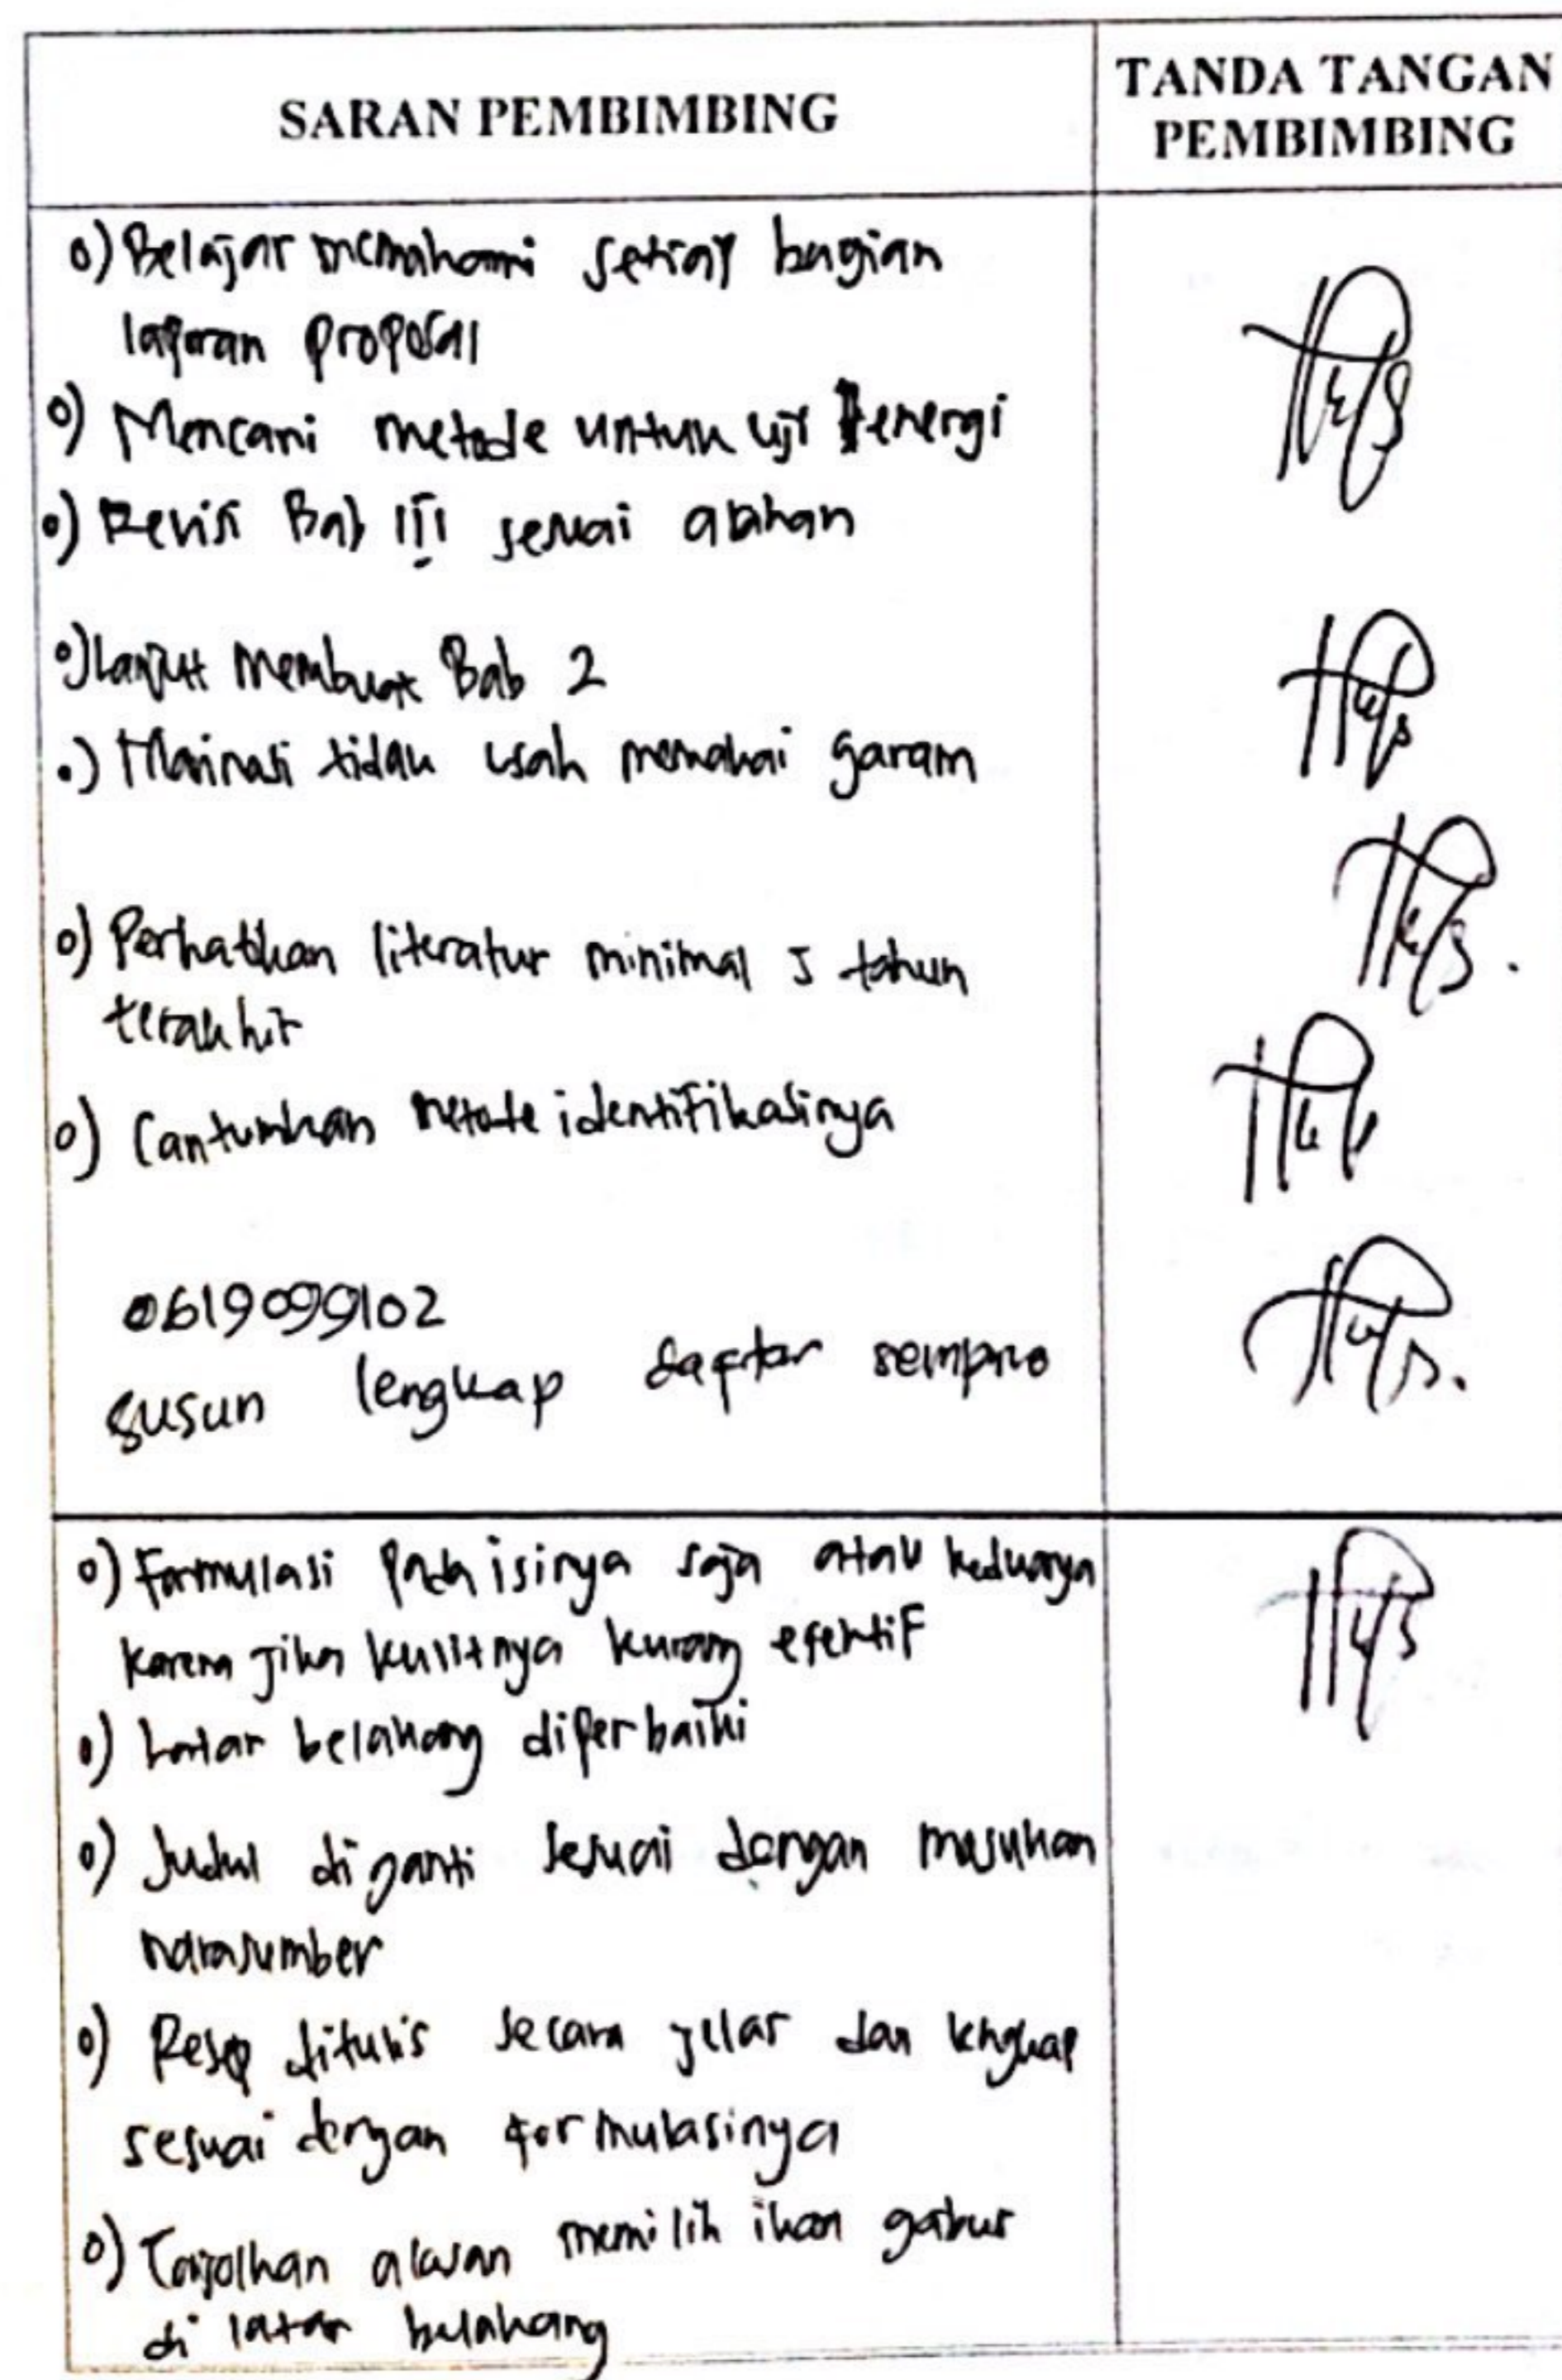 SARAN PEMBIMBING
TANDA TANGAN
PEMBIMBING
o) Belajar memahami setiap bagian
laporan proposal
o) Mencari metode untuk uji energi
o) Revisi Bab III sesuai arahan
o) Lanjut membuat Bab 2
o) Marinasi tidak usah memakai garam
o) Perhatikan literatur minimal 5 tahun
terakhir
o) Cantumkan metode identifikasinya
0619099102
susun lengkap daftar sempro
o) Formulasi pada isinya saja atau keduanya
karena jika kulitnya kurang efektif
o) Latar belakang diperbaiki
o) Judul diganti sesuai dengan masukan
narasumber
o) Resep ditulis secara jelas dan lengkap
sesuai dengan formulasinya
o) Tonjolkan alasan memilih ikan gabus
di latar belakang